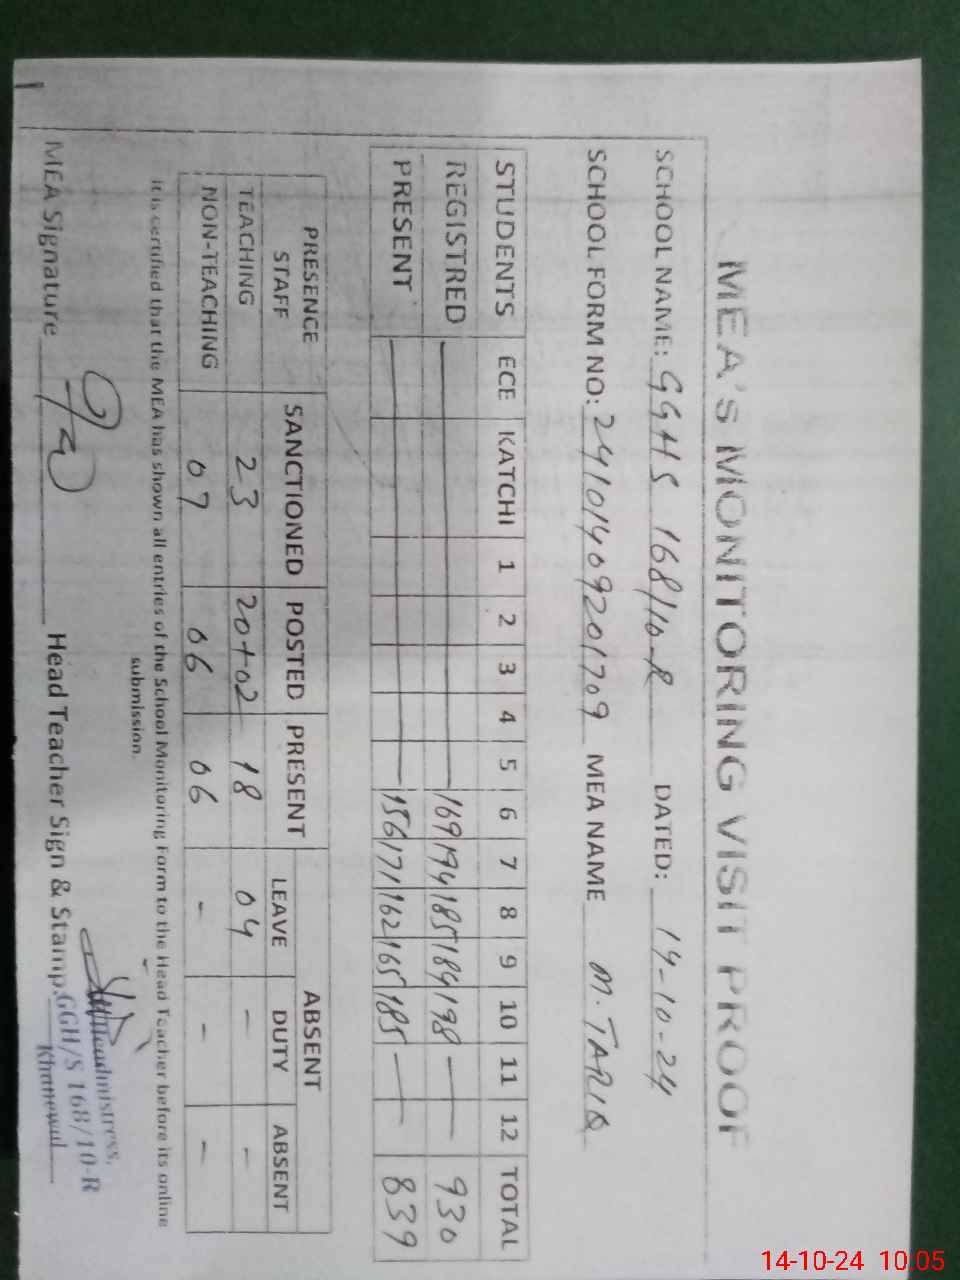 MEA'S MONITORING VISIT PROOF
SCHOOL NAME: GGHS 168/10-R DATED: 14-10-24
SCHOOL FORM NO: 24101409201709 MEA NAME M. TARIQ
STUDENTS ECE KATCHI 1 2 3 4 5 6 7 8 9 10 11 12 TOTAL
REGISTRED 169 194 185 184 198 — 930
PRESENT 156 171 162 165 185 — 839
PRESENCE STAFF SANCTIONED POSTED PRESENT ABSENT
LEAVE DUTY ABSENT
TEACHING 23 20+02 18 04 - -
NON-TEACHING 07 06 06 - - -
It is certified that the MEA has shown all entries of the School Monitoring Form to the Head Teacher before its online
submission.
MEA Signature Head Teacher Sign & Stamp:
Headmistress,
GGH/S 168/10-R
Khanewal
14-10-24 10:05